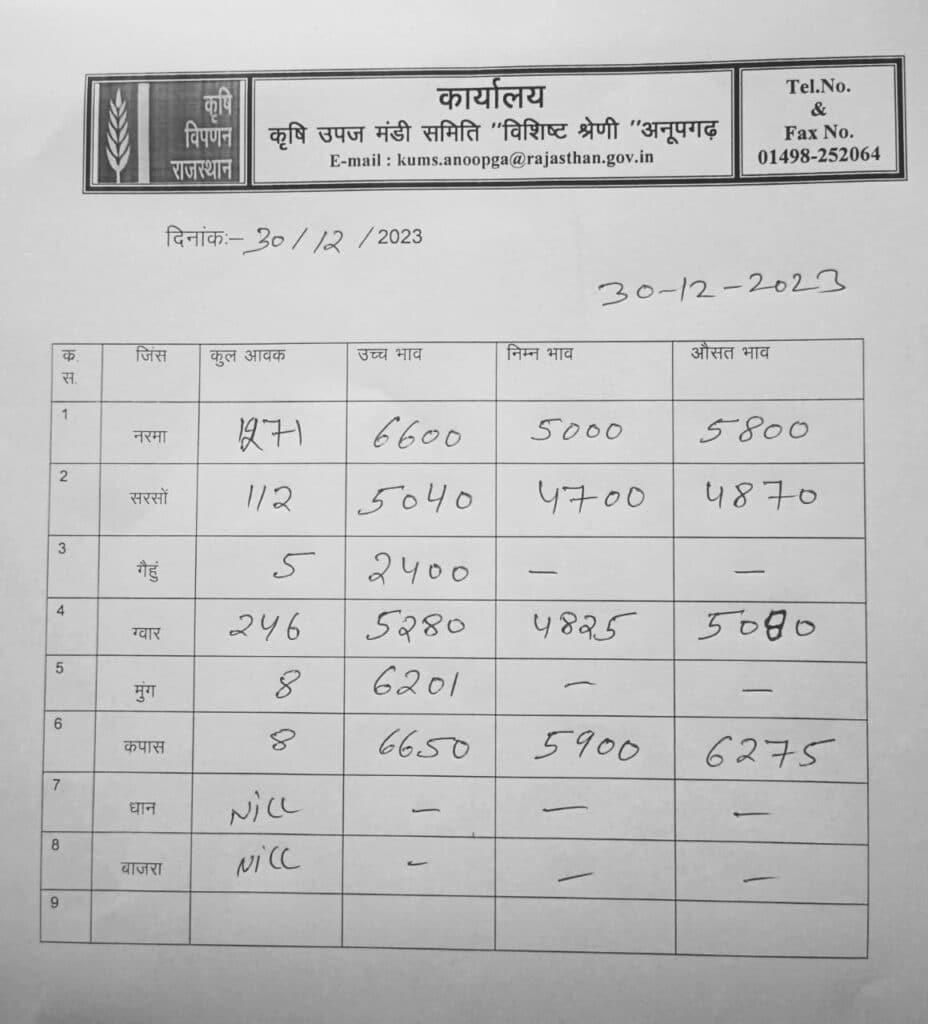 कृषि
विपणन
राजस्थान
कार्यालय
कृषि उपज मंडी समिति "विशिष्ट श्रेणी "अनूपगढ़
E-mail : kums.anoopga@rajasthan.gov.in
Tel.No.
&
Fax No.
01498-252064
दिनांकः– 30/12/2023
30-12-2023
क. स. जिंस कुल आवक उच्च भाव निम्न भाव औसत भाव
1 नरमा 1271 6600 5000 5800
2 सरसों 112 5040 4700 4870
3 गैहुं 5 2400 — —
4 ग्वार 246 5280 4825 5080
5 मुंग 8 6201 — —
6 कपास 8 6650 5900 6275
7 धान Nill — — —
8 बाजरा Nill — — —
9